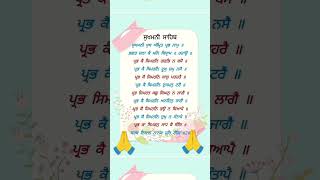 ਸੁਖਮਨੀ ਸਾਹਿਬ
ਸੁਖਮਨੀ ਸੁਖ ਅੰਮ੍ਰਿਤ ਪ੍ਰਭ ਨਾਮੁ ॥
ਭਗਤ ਜਨਾ ਕੈ ਮਨਿ ਬਿਸ੍ਰਾਮ ॥ ਰਹਾਉ ॥
ਪ੍ਰਭ ਕੈ ਸਿਮਰਨਿ ਗਰਭਿ ਨ ਬਸੈ ॥
ਪ੍ਰਭ ਕੈ ਸਿਮਰਨਿ ਦੂਖੁ ਜਮੁ ਨਸੈ ॥
ਪ੍ਰਭ ਕੈ ਸਿਮਰਨਿ ਕਾਲੁ ਪਰਹਰੈ ॥
ਪ੍ਰਭ ਕੈ ਸਿਮਰਨਿ ਦੁਸਮਨੁ ਟਰੈ ॥
ਪ੍ਰਭ ਸਿਮਰਤ ਕਛੁ ਬਿਘਨੁ ਨ ਲਾਗੈ ॥
ਪ੍ਰਭ ਕੈ ਸਿਮਰਨਿ ਅਨਦਿਨੁ ਜਾਗੈ ॥
ਪ੍ਰਭ ਕੈ ਸਿਮਰਨਿ ਭਉ ਨ ਬਿਆਪੈ ॥
ਪ੍ਰਭ ਕੈ ਸਿਮਰਨਿ ਦੁਖੁ ਨ ਸੰਤਾਪੈ ॥
ਪ੍ਰਭ ਕਾ ਸਿਮਰਨੁ ਸਾਧ ਕੈ ਸੰਗਿ ॥
ਸਰਬ ਨਿਧਾਨ ਨਾਨਕ ਹਰਿ ਰੰਗਿ ॥੨॥